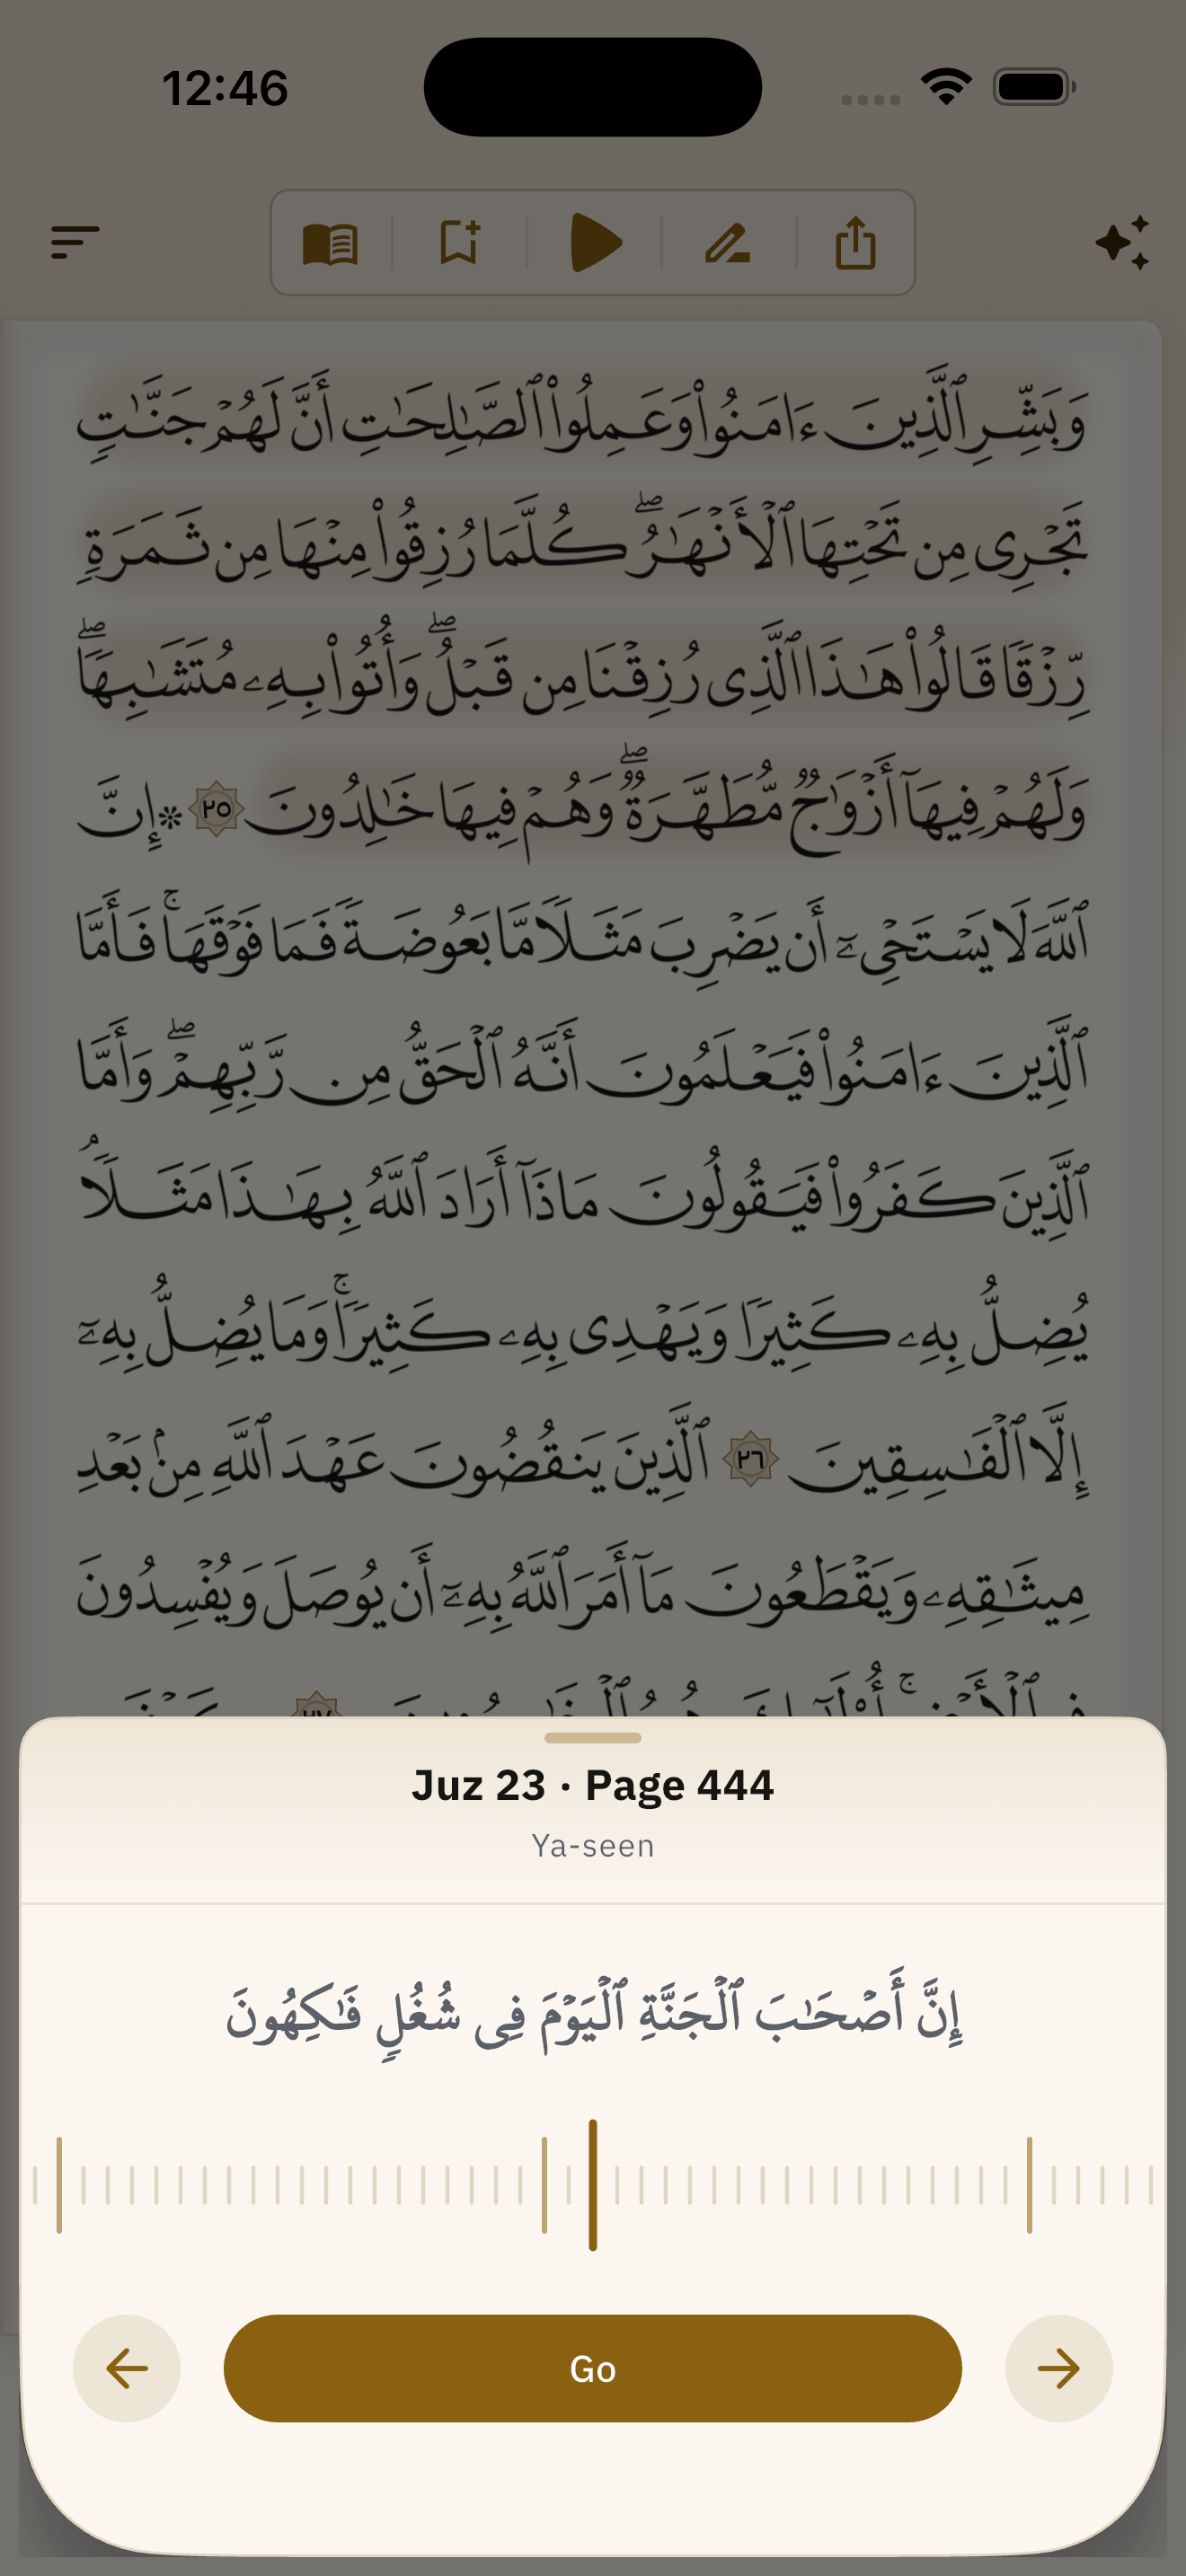 12:46
وَبَشِّرِ ٱلَّذِينَ ءَامَنُوا۟ وَعَمِلُوا۟ ٱلصَّـٰلِحَـٰتِ أَنَّ لَهُمْ جَنَّـٰتٍ
تَجْرِى مِن تَحْتِهَا ٱلْأَنْهَـٰرُ ۖ كُلَّمَا رُزِقُوا۟ مِنْهَا مِن ثَمَرَةٍ
رِّزْقًا قَالُوا۟ هَـٰذَا ٱلَّذِى رُزِقْنَا مِن قَبْلُ ۖ وَأُتُوا۟ بِهِۦ مُتَشَـٰبِهًا ۖ
وَلَهُمْ فِيهَآ أَزْوَٰجٌ مُّطَهَّرَةٌ ۖ وَهُمْ فِيهَا خَـٰلِدُونَ ٢٥ ۞ إِنَّ
ٱللَّهَ لَا يَسْتَحْىِۦٓ أَن يَضْرِبَ مَثَلًا مَّا بَعُوضَةً فَمَا فَوْقَهَا ۚ فَأَمَّا
ٱلَّذِينَ ءَامَنُوا۟ فَيَعْلَمُونَ أَنَّهُ ٱلْحَقُّ مِن رَّبِّهِمْ ۖ وَأَمَّا
ٱلَّذِينَ كَفَرُوا۟ فَيَقُولُونَ مَاذَآ أَرَادَ ٱللَّهُ بِهَـٰذَا مَثَلًا ۘ
يُضِلُّ بِهِۦ كَثِيرًا وَيَهْدِى بِهِۦ كَثِيرًا ۚ وَمَا يُضِلُّ بِهِۦٓ
إِلَّا ٱلْفَـٰسِقِينَ ٢٦ ٱلَّذِينَ يَنقُضُونَ عَهْدَ ٱللَّهِ مِنۢ بَعْدِ
مِيثَـٰقِهِۦ وَيَقْطَعُونَ مَآ أَمَرَ ٱللَّهُ بِهِۦٓ أَن يُوصَلَ وَيُفْسِدُونَ
Juz 23 · Page 444
Ya-seen
إِنَّ أَصْحَـٰبَ ٱلْجَنَّةِ ٱلْيَوْمَ فِى شُغُلٍ فَـٰكِهُونَ
Go